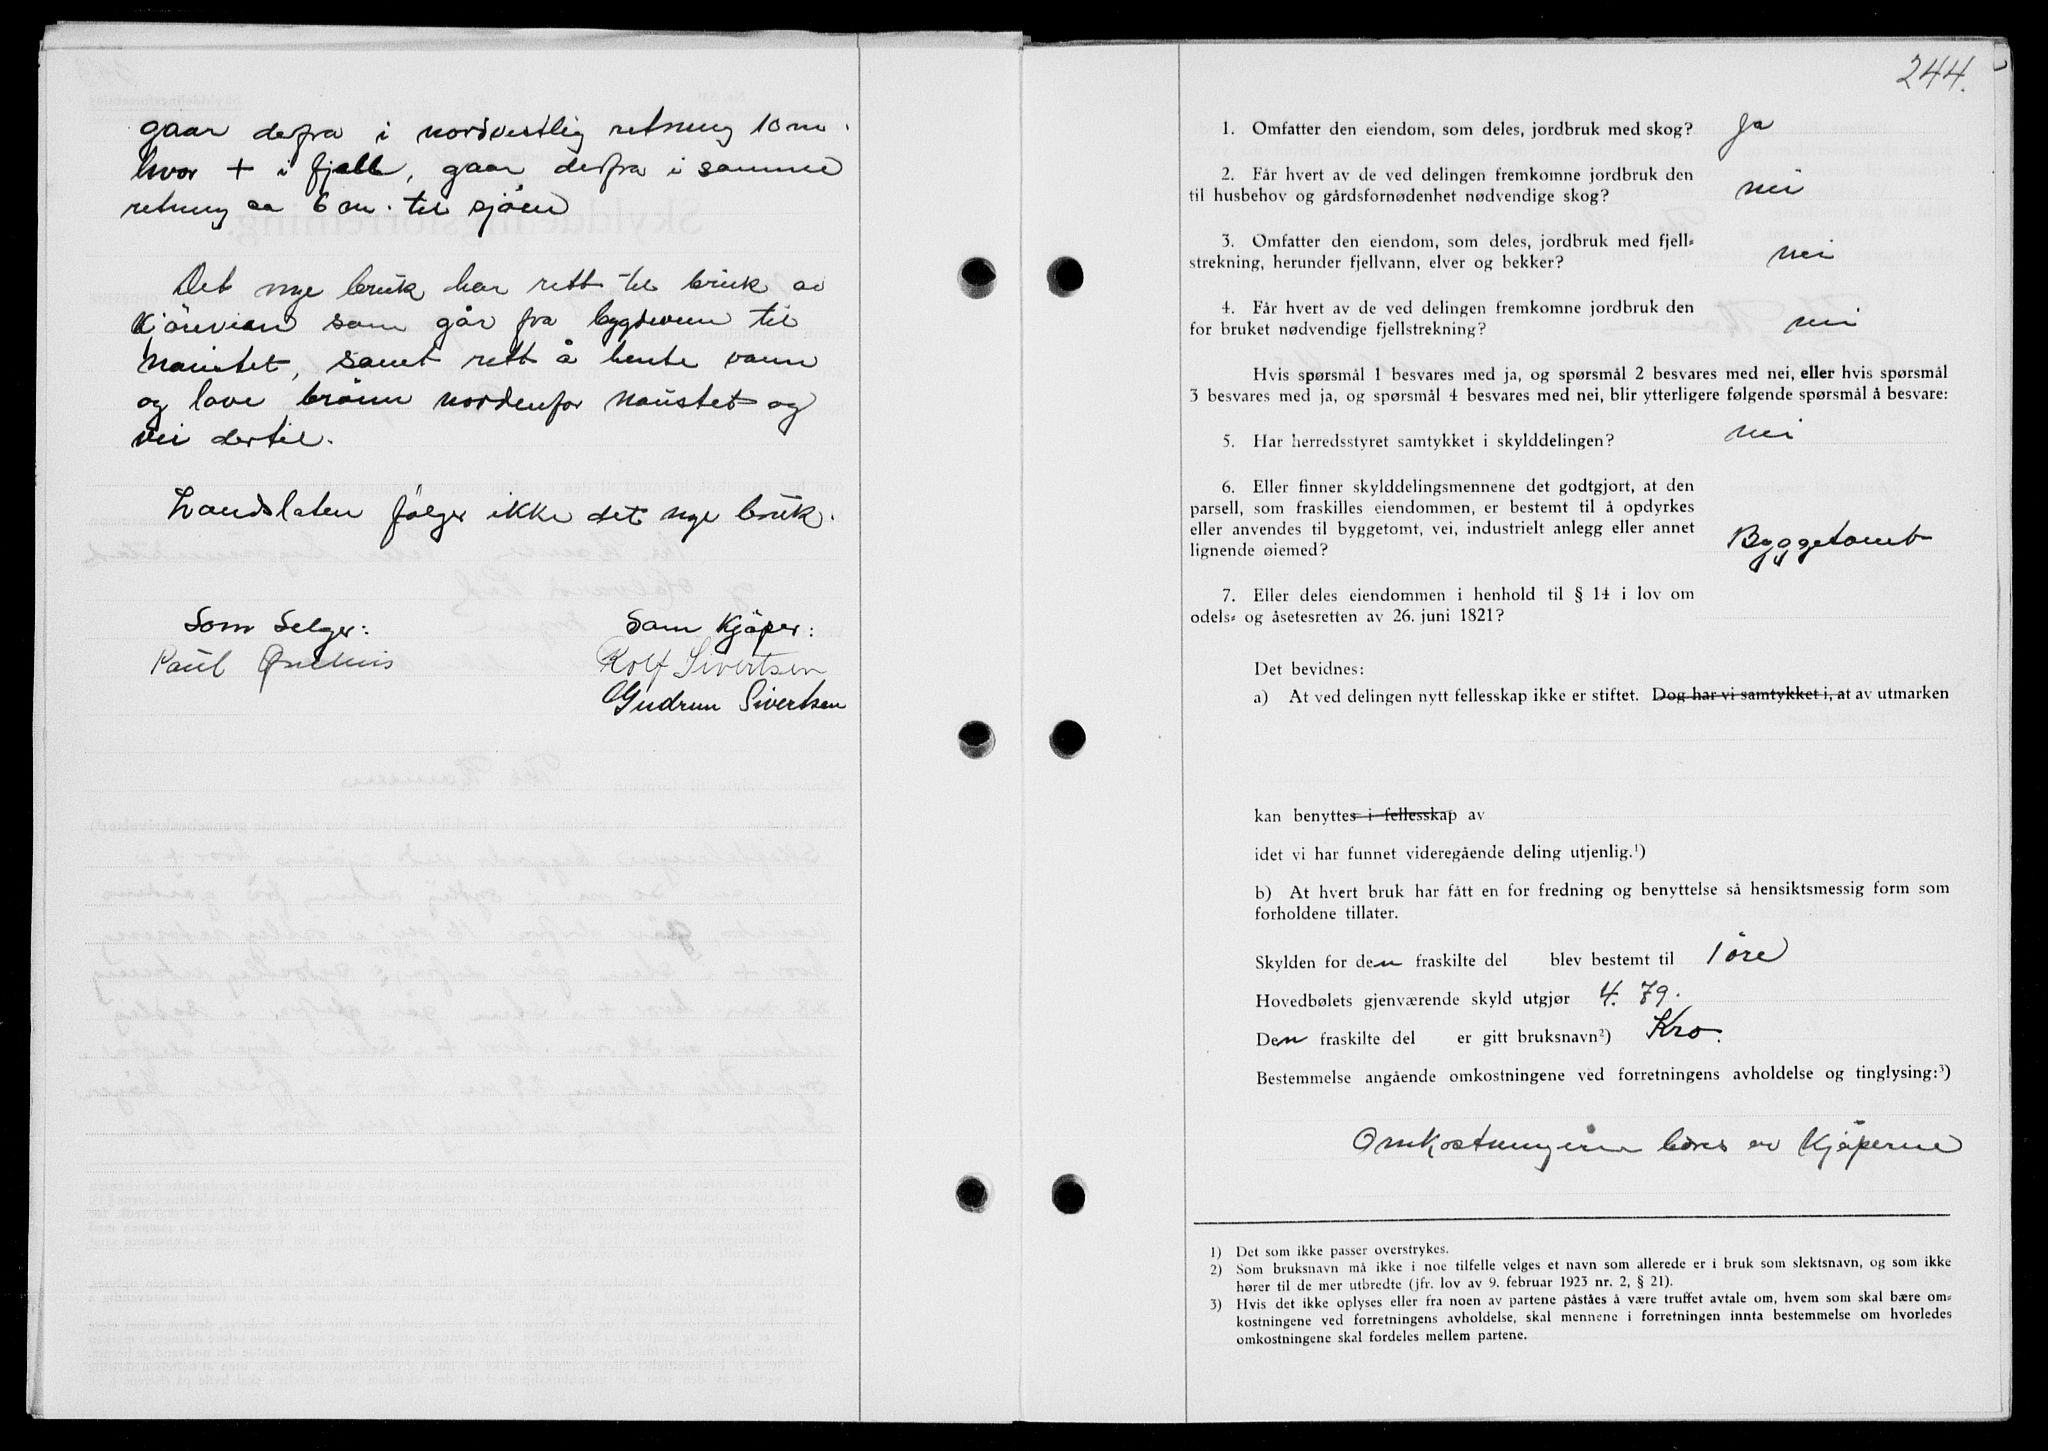 gaar derfra i nordvestlig retning 10 m.
hvor + i fjell, gaar derfra i samme
retning ca 6 m. til sjöen
Det nye bruk har rett til bruk av
kjöreveien som går fra bygdeveien til
naustet, samt rett å hente vann
og lave brönn nordenfor naustet og
vei dertil.
Landslaten følger ikke det nye bruk.
Som Selger: Som Kjöper:
Paul Rolf Sivertsen
Gudrun Sivertsen
244.
1. Omfatter den eiendom, som deles, jordbruk med skog? Ja
2. Får hvert av de ved delingen fremkomne jordbruk den
til husbehov og gårdsfornødenhet nødvendige skog? nei
3. Omfatter den eiendom, som deles, jordbruk med fjell-
strekning, herunder fjellvann, elver og bekker? nei
4. Får hvert av de ved delingen fremkomne jordbruk den
for bruket nødvendige fjellstrekning? nei
Hvis spørsmål 1 besvares med ja, og spørsmål 2 besvares med nei, eller hvis spørsmål
3 besvares med ja, og spørsmål 4 besvares med nei, blir ytterligere følgende spørsmål å besvare:
5. Har herredsstyret samtykket i skylddelingen? nei
6. Eller finner skylddelingsmennene det godtgjort, at den
parsell, som fraskilles eiendommen, er bestemt til å opdyrkes
eller anvendes til byggetomt, vei, industrielt anlegg eller annet
lignende øiemed? Byggetomt
7. Eller deles eiendommen i henhold til § 14 i lov om
odels- og åsetesretten av 26. juni 1821?
Det bevidnes:
a) At ved delingen nytt fellesskap ikke er stiftet. Dog har vi samtykket i, at av utmarken
kan benyttes i fellesskap av
idet vi har funnet videregående deling utjenlig.¹)
b) At hvert bruk har fått en for fredning og benyttelse så hensiktsmessig form som
forholdene tillater.
Skylden for den fraskilte del blev bestemt til 1 öre
Hovedbølets gjenværende skyld utgjør 4.79.
Den fraskilte del er gitt bruksnavn²) Kro.
Bestemmelse angående omkostningene ved forretningens avholdelse og tinglysing:³)
Omkostningene bæres av Kjöperne
1) Det som ikke passer overstrykes.
2) Som bruksnavn må ikke i noe tilfelle velges et navn som allerede er i bruk som slektsnavn, og som ikke
hører til de mer utbredte (jfr. lov av 9. februar 1923 nr. 2, § 21).
3) Hvis det ikke oplyses eller fra noen av partene påståes å være truffet avtale om, hvem som skal bære om-
kostningene ved forretningens avholdelse, skal mennene i forretningen innta bestemmelse om hvorledes
omkostningene skal fordeles mellem partene.